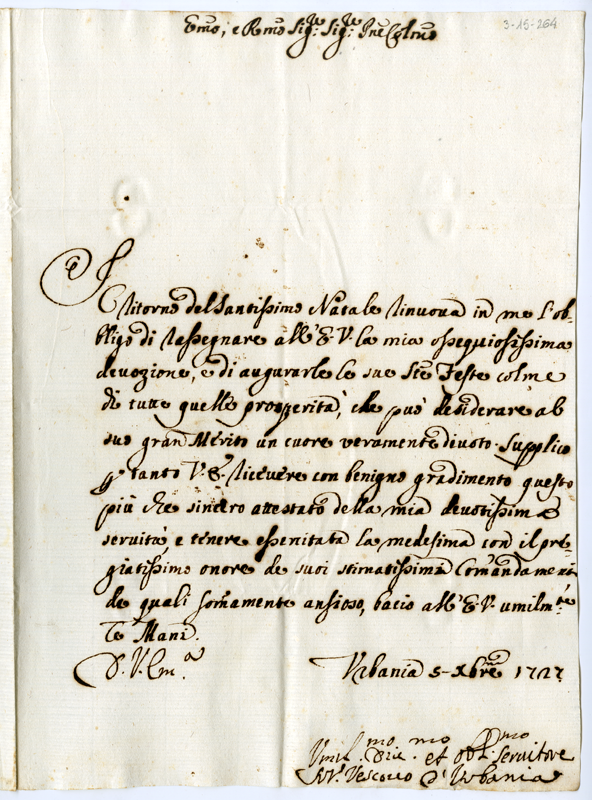 3-15-264
Emo, e Rmo Sig.re Sig.re Pne Colmo
Il
ritorno del Santissimo Natale rinuova in me l'ob-
bligo di rassegnare all'E.V. la mia ossequiosissima
devozione, e di augurarle le sue Ste Feste colme
di tutte quelle prosperità, che può desiderare al
suo gran Merito un cuore veramente divoto. Supplico
p tanto V.E. ricevere con benigno gradimento questo
più che sincero attestato della mia devotissima
servitù, e tenere essercitata la medesima con il pre-
giatissimo onore de suoi stimatissimi Comandamenti
de quali sommamente ansioso, bacio all'E.V. umilmte
le Mani.
D.V. Em.a
Urbania 5 Xbre 1727
Umil.mo Div.mo et obl.mo Servitore
Vescovo d'Urbania